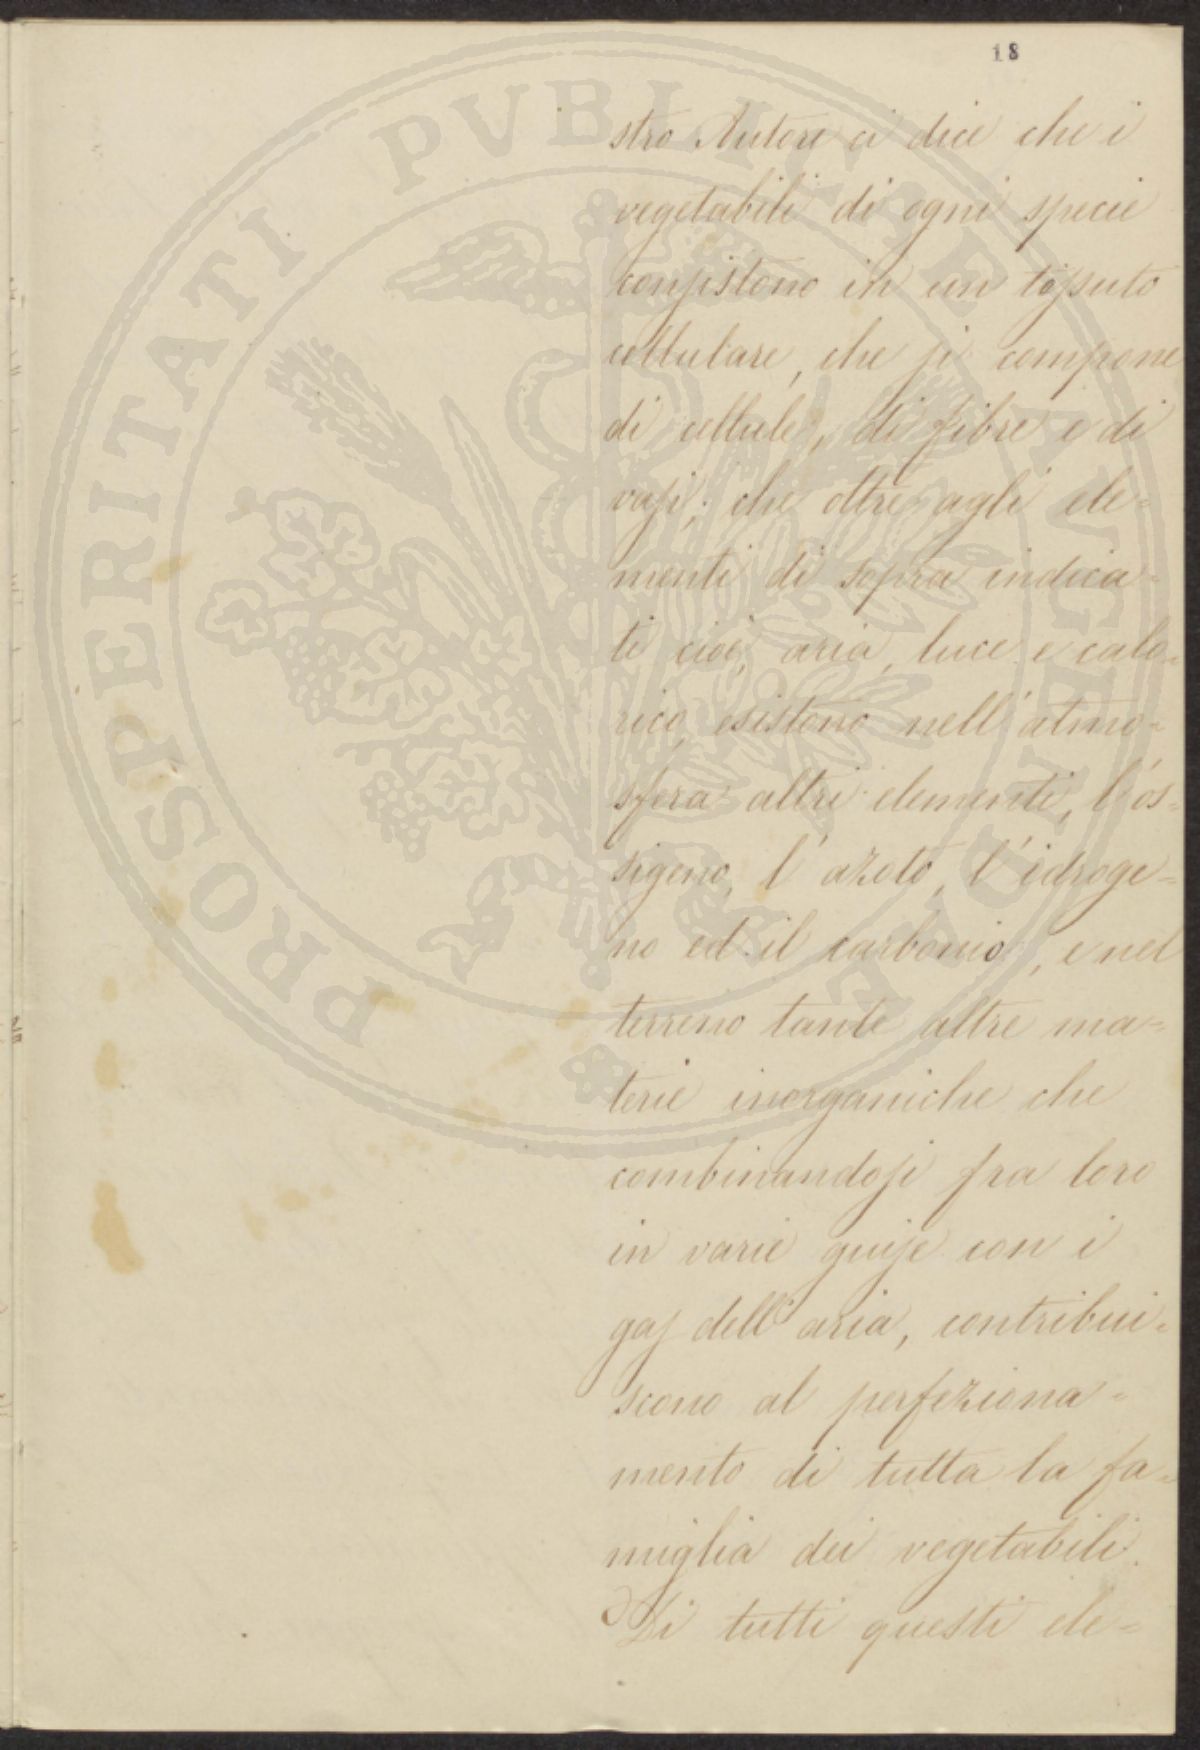 18
stro Autore ci dice che i
vegetabili di ogni specie
consistono in un tessuto
cellulare, che si compone
di cellule, di fibre e di
vasi; che oltre agli ele=
menti di sopra indica=
ti cioè, aria, luce e calo=
rico, esistono nell'atmo=
sfera altri elementi, l'os=
sigeno, l'azoto, l'idroge=
no ed il carbonio, e nel
terreno tante altre ma=
terie inorganiche che
combinandosi fra loro
in varie guise con i
gas dell'aria, contribui=
scono al perfeziona=
mento di tutta la fa=
miglia dei vegetabili.
Di tutti questi ele=
PROSPERITATI PVBLICAE AVGENDAE